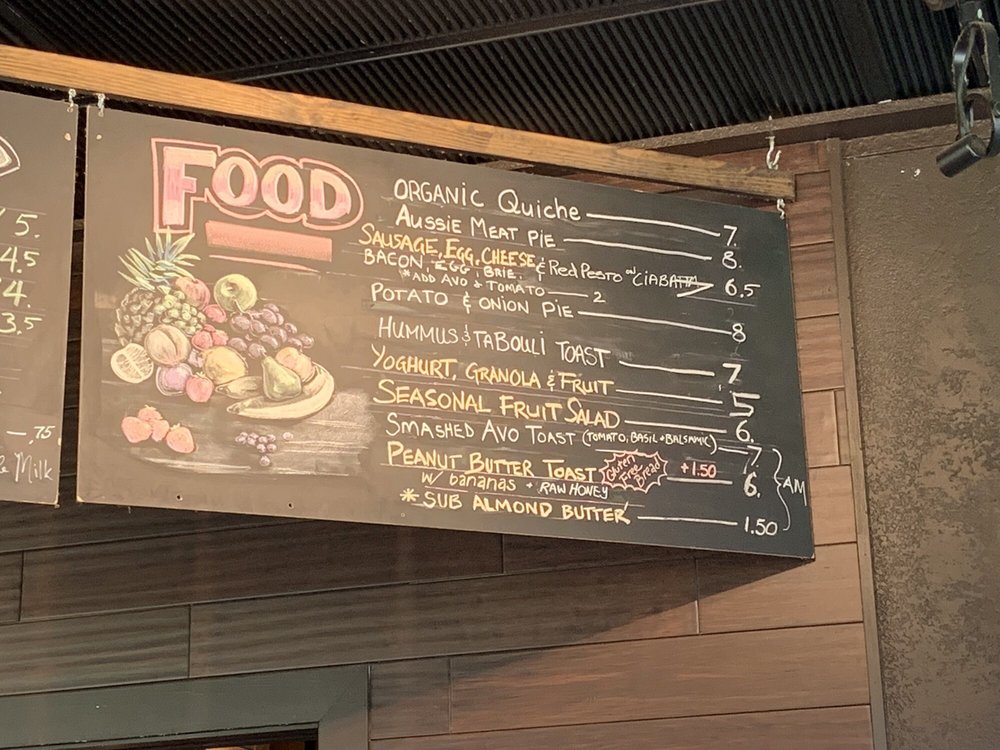 5.
4.5
4.
3.5
.75
Milk
FOOD
ORGANIC Quiche 7.
AUSSIE MEAT PIE 8.
SAUSAGE, EGG, CHEESE
BACON, EGG, BRIE. & Red Pesto on CIABATTA 6.5
*ADD AVO & TOMATO 2
POTATO & ONION PIE 8
HUMMUS & TABOULI TOAST 7
YOGHURT, GRANOLA & FRUIT 5
SEASONAL FRUIT SALAD 6.
SMASHED AVO TOAST (TOMATO, BASIL + BALSAMIC) 7.
PEANUT BUTTER TOAST Gluten Free Bread +1.50 6.
W/ bananas + RAW HONEY
* SUB ALMOND BUTTER 1.50
AM